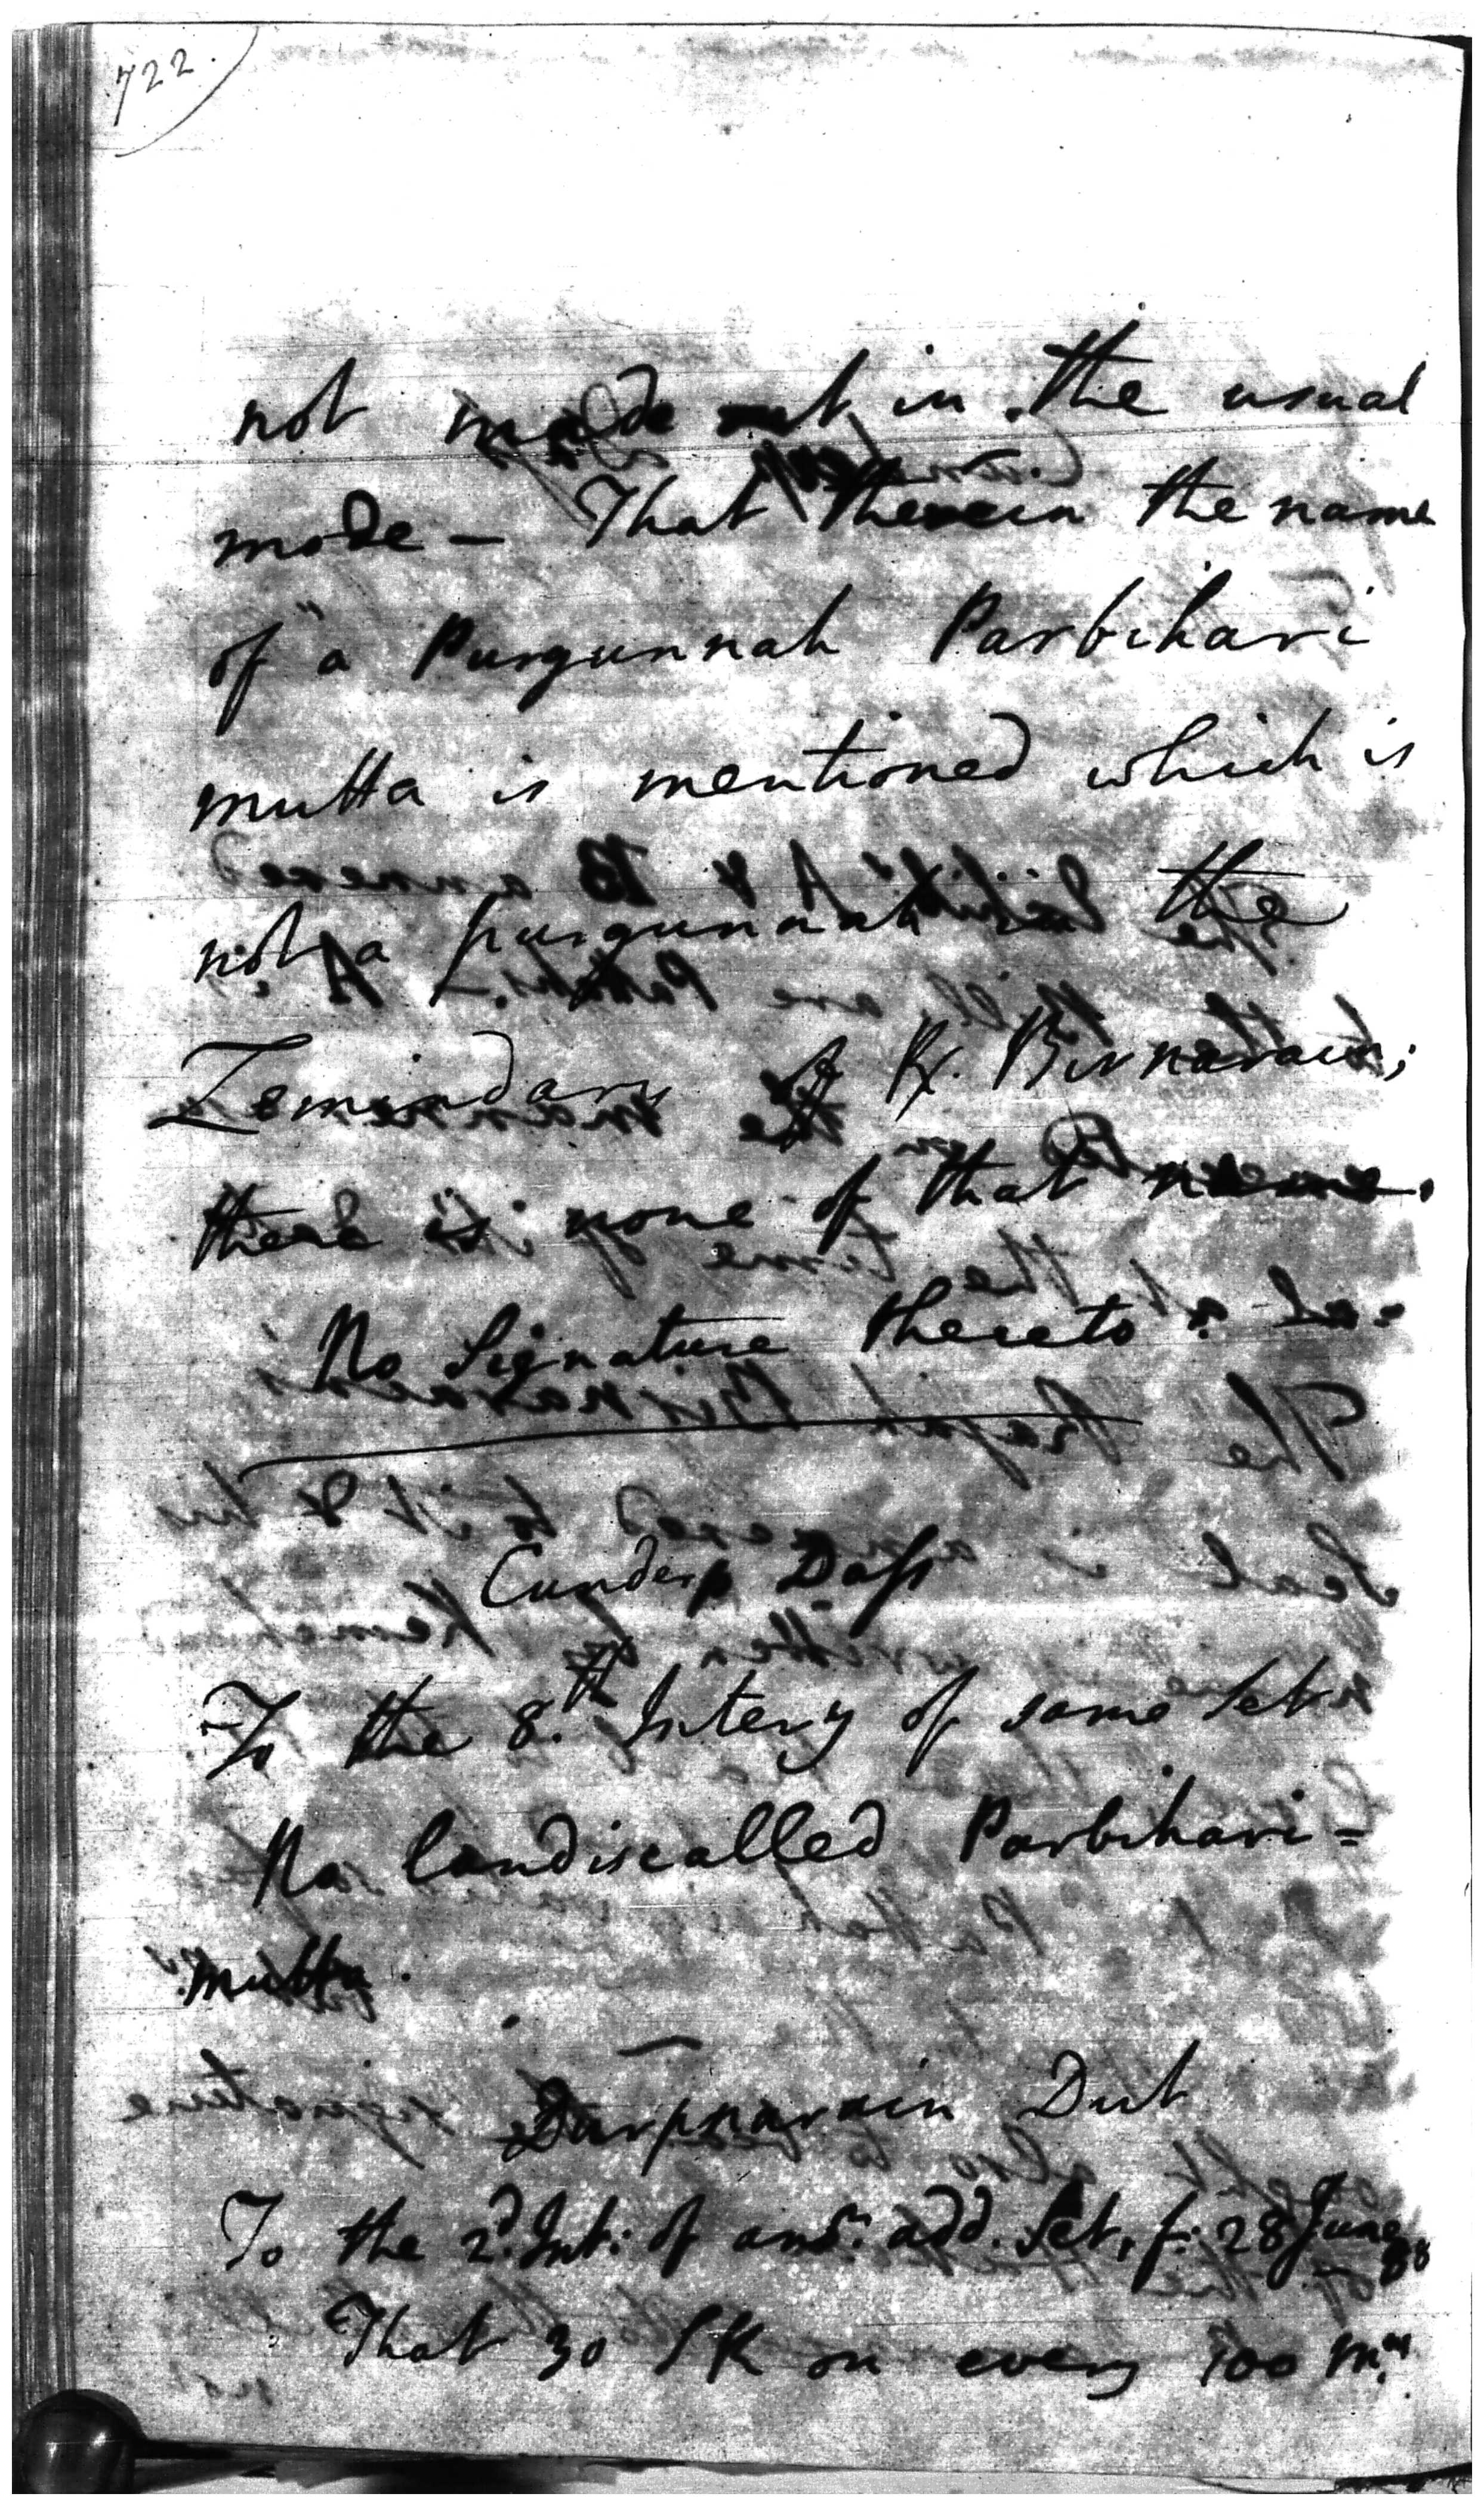 722.
not made out in the usual
mode — That therein the name
of a Purgunnah Parbihari
mutta is mentioned which is
not a purgunnah the
Zemindary of R. Birnarain;
there is none of that name.
No Signature thereto
Cunderp Dass
To the 8.th Intery of same Set
No land is called Parbihari =
mutta.
Darpnarain Dut
To the 2d. Int: of anr. add. Set, f: 28 June 88
That 30 SK on every 100 Mds